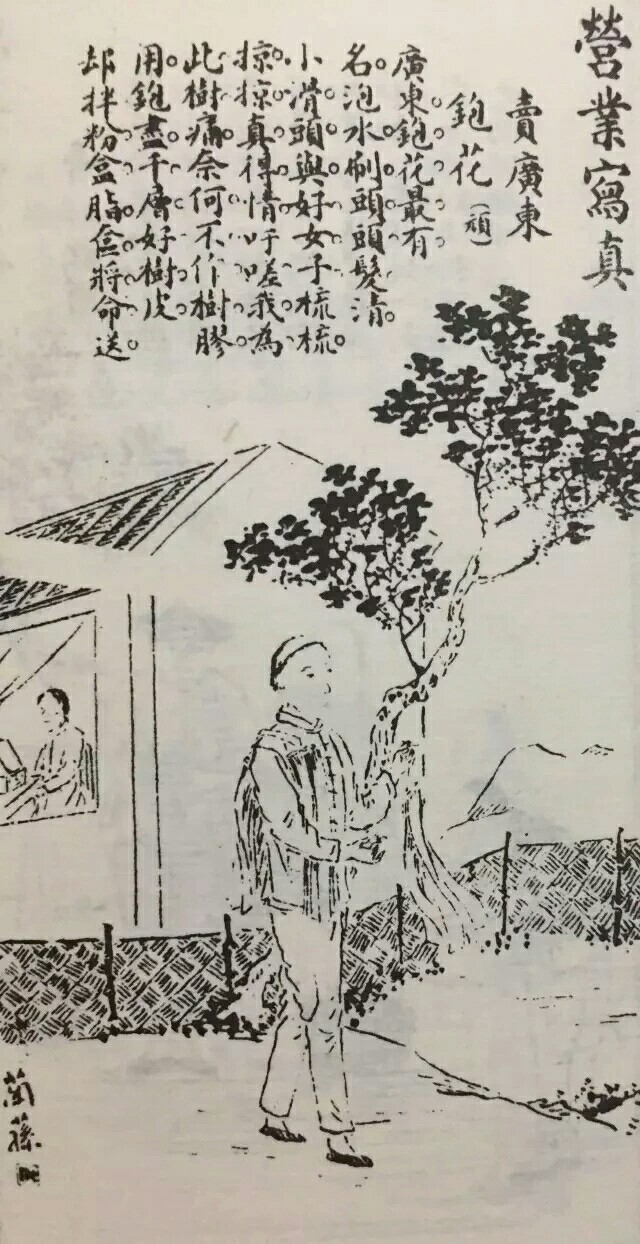 營業寫真
賣廣東
鉋花(頑)
廣東鉋花最有
名泡水刷頭頭髮清
小滑頭與好女子梳梳
掠掠真得情吁嗟我為
此樹痛奈何不作樹膠
用鉋盡千層好樹皮
却拌粉盒脂奩將命送